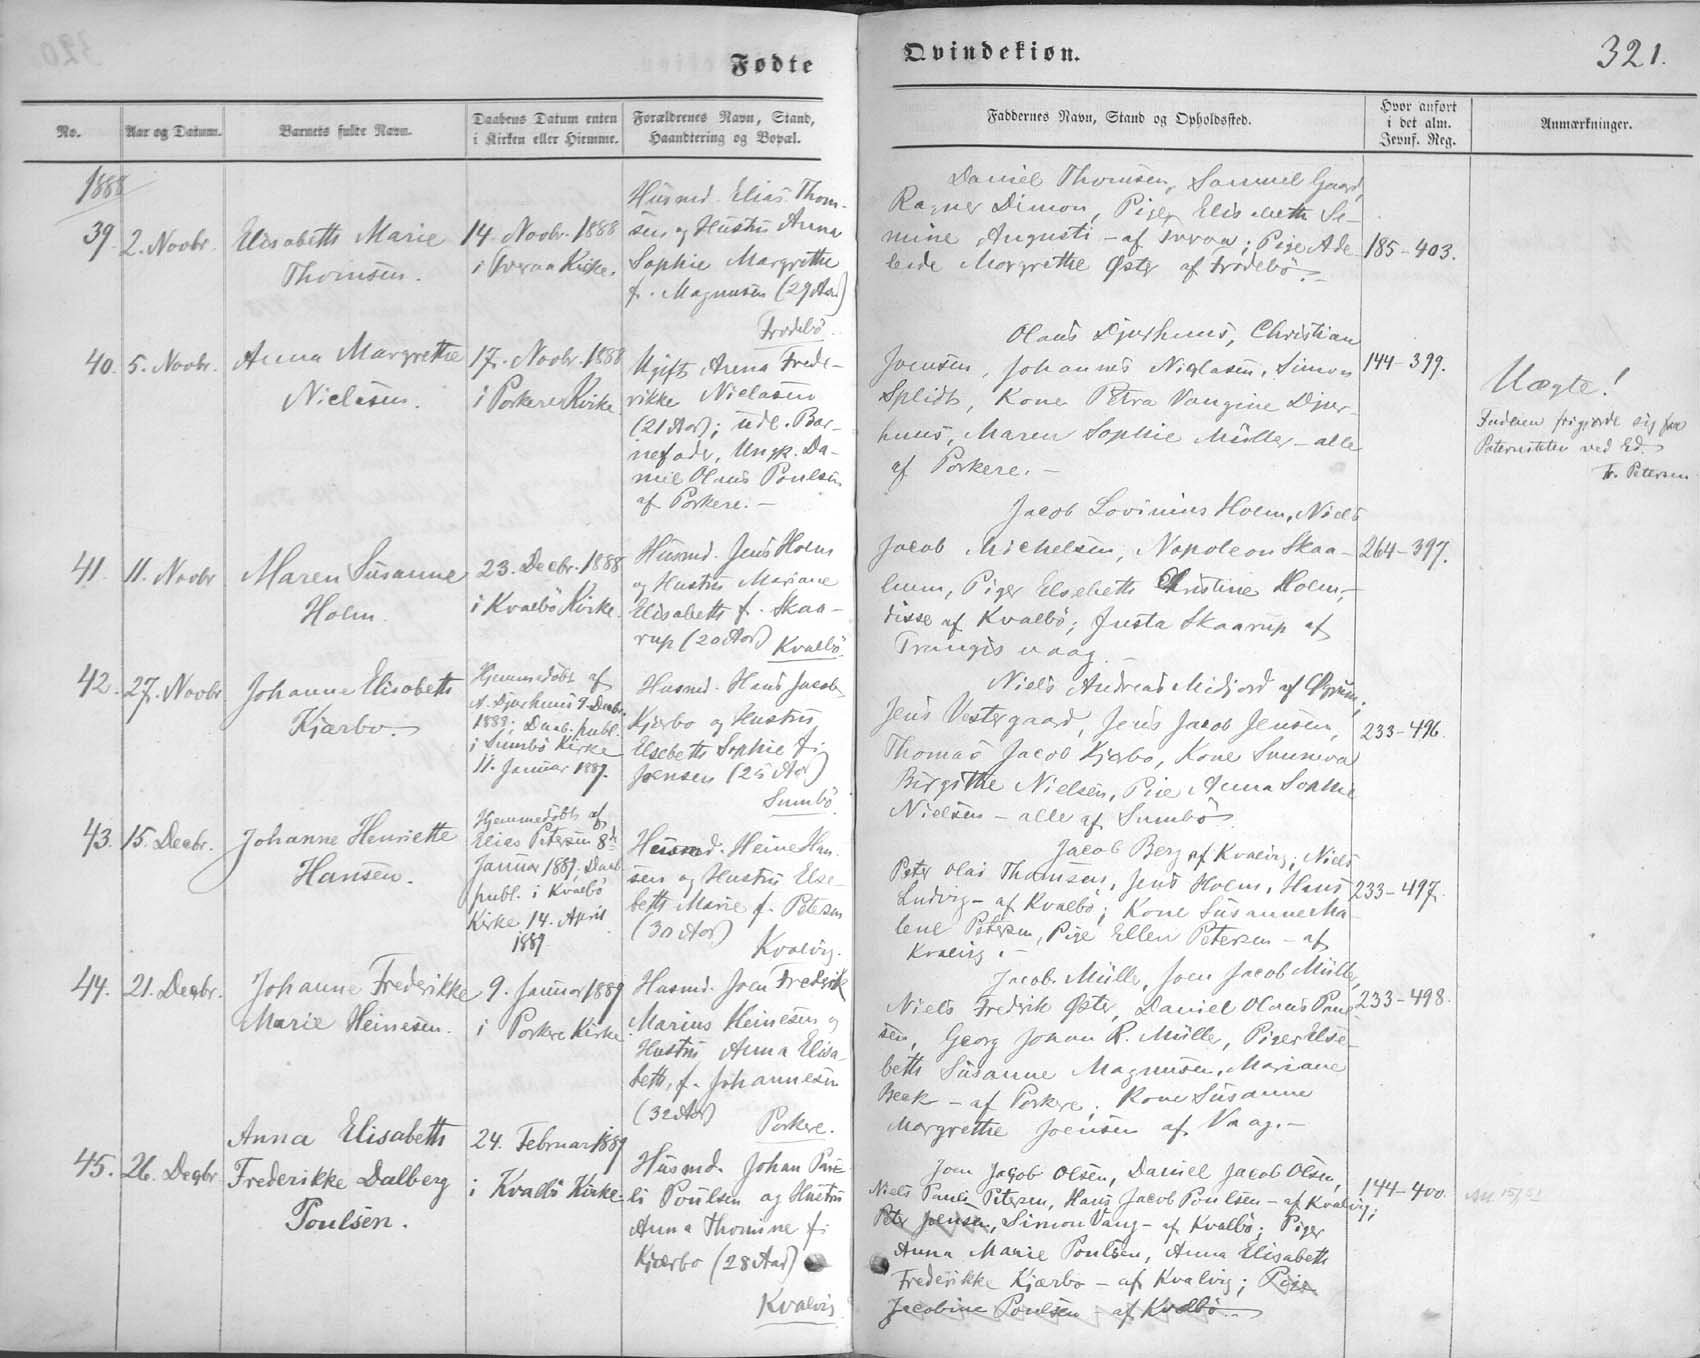 Fødte
Qvindekiøn.
321.
No.
Aar og Datum.
Barnets fulde Navn.
Daabens Datum enten
i Kirken eller Hiemme.
Forældrenes Navn, Stand,
Haandtering og Bopæl.
Faddernes Navn, Stand og Opholdssted.
Hvor anført
i det alm.
Jevnf. Reg.
Anmærkninger.
1888
39. 2. Novbr.
Elisabeth Marie
Thomsen.
14. Novbr. 1888
i Kirke.
Husmd. Elias Thom-
sen og Hustru Anna
Sophie Margrethe
f. Magnusen (29 Aar)
Frodebö.
Daniel Thomsen, Samuel Gaard,
Ragner Dimon, Piger Elisabeth Se-
mine Augusti - af ; Pige Ade-
leide Margrethe Øster af Frodebö. -
185-403.
40. 5. Novbr.
Anna Margrethe
Niclasen.
17. Novbr. 1888
i Porkere Kirke
Ugift Anna Frede-
rikke Niclasen
(21 Aar); udl. Bar-
nefader, Ungk. Da-
niel Olaus Poulsen
af Porkere. -
Olaus Djurhuus, Christian
Joensen, Johannes Niclasen, Simon
Splidt, Kone Petra Vangine Djur-
huus, Maren Sophie Müller - alle
af Porkere. -
144-399.
Uægte!
Faderen frigjorde sig for
Paterniteten ved Ed.
Fr. Petersen
41. 11. Novbr
Maren Susanne
Holm.
23. Decbr. 1888
i Kvalbö Kirke.
Husmd. Jens Holm
og Hustru Mariane
Elisabeth f. Skaa-
rup (20 Aar) Kvalbö.
Jacob Lovinius Holm, Niels
Jacob Michelsen, Napoleon Skaa-
lum, Piger Elsebeth Christine Holm,-
disse af Kvalbö; Justa Skaarup af
Trangisvaag. -
264-397.
42. 27. Novbr
Johanne Elisabeth
Kjærbo.
Hjemmedöbt af
N. Djurhuus 9. Decbr.
1888; Daab. publ.
i Sumbö Kirke
11. Januar 1889.
Husmd. Hans Jacob
Kjærbo og Hustru
Elsebeth Sophie f.
Joensen (25 Aar)
Sumbö.
Niels Andreas Midjord af Øgrum;
Jens Vestergaard, Jens Jacob Jensen,
Thomas Jacob Kjærbo, Kone Sunneva
Birgithe Nielsen, Pige Anna Sophie
Nielsen - alle af Sumbö.
233-496.
43. 15. Decbr.
Johanne Henriette
Hansen.
Hjemmedöbt af
Elias Petersen 8de
Januar 1889; Daab.
publ. i Kvalbö
Kirke 14. April
1889.
Husmd. Heine Han-
sen og Hustru Else-
beth Marie f. Petersen
(30 Aar)
Kvalvig.
Jacob Berg af Kvalvig; Niels
Peter Olai Thomsen, Jens Holm, Hans
Ludvig - af Kvalbö; Kone Susanne Ma-
lene Petersen, Pige Ellen Petersen - af
Kvalvig. -
233-497.
44. 21. Decbr.
Johanne Frederikke
Marie Heinesen.
9. Januar 1889
i Porkere Kirke
Husmd. Joen Fredrik
Marius Heinesen og
Hustru Anna Elisa-
beth, f. Johannesen
(32 Aar)
Porkere.
Jacob Müller, Joen Jacob Müller,
Niels Fredrik Øster, Daniel Olaus Poul-
sen, Georg Johan R. Müller, Piger Else-
beth Susanne Magnusen, Mariane
Beck - af Porkere; Kone Susanne
Margrethe Joensen af Vaag. -
233-498.
45. 26. Decbr
Anna Elisabeth
Frederikke Dalberg
Poulsen.
24. Februar 1889
i Kvalbö Kirke
Husmd. Johan Pau-
li Poulsen og Hustru
Anna Thomine f.
Kjærbo (28 Aar)
Kvalvig
Joen Jacob Olsen, Daniel Jacob Olsen,
Niels Pauli Petersen, Hans Jacob Poulsen - af Kvalvig;
Peter Joensen, Simon Vang - af Kvalbö; Piger
Anna Marie Poulsen, Anna Elisabeth
Frederikke Kjærbo - af Kvalvig; Pige
Jacobine Poulsen - af Kvalbö. -
144-400.